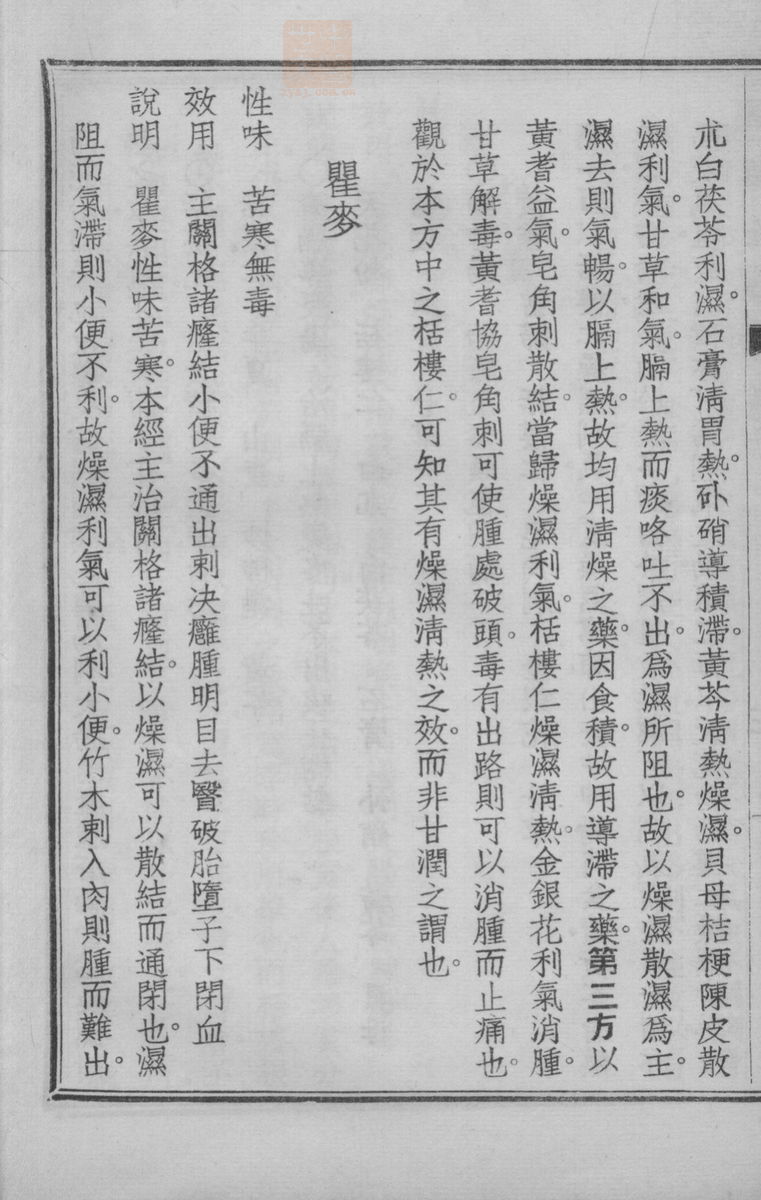 朮白茯苓利濕。石膏淸胃熱。硝導積滯。黃芩淸熱燥濕。貝母桔梗陳皮散
濕利氣。甘草和氣。膈上熱而痰咯吐不出。爲濕所阻也。故以燥濕散濕爲主。
濕去則氣暢。以膈上熱。故均用淸燥之藥。因食積。故用導滯之藥。第三方以
黃耆益氣。皂角刺散結。當歸燥濕利氣。栝樓仁燥濕淸熱。金銀花利氣消腫。
甘草解毒。黃耆協皂角刺可使腫處破頭。毒有出路則可以消腫而止痛也。
觀於本方中之栝樓仁。可知其有燥濕淸熱之效。而非甘潤之謂也。
瞿麥
性味　苦寒無毒
效用　主關格諸癃結小便不通出刺決癰腫明目去瞖破胎墮子下閉血
說明　瞿麥性味苦寒。本經主治關格諸癃結。以燥濕可以散結而通閉也。濕
阻而氣滯則小便不利。故燥濕利氣可以利小便。竹木刺入肉則腫而難出。